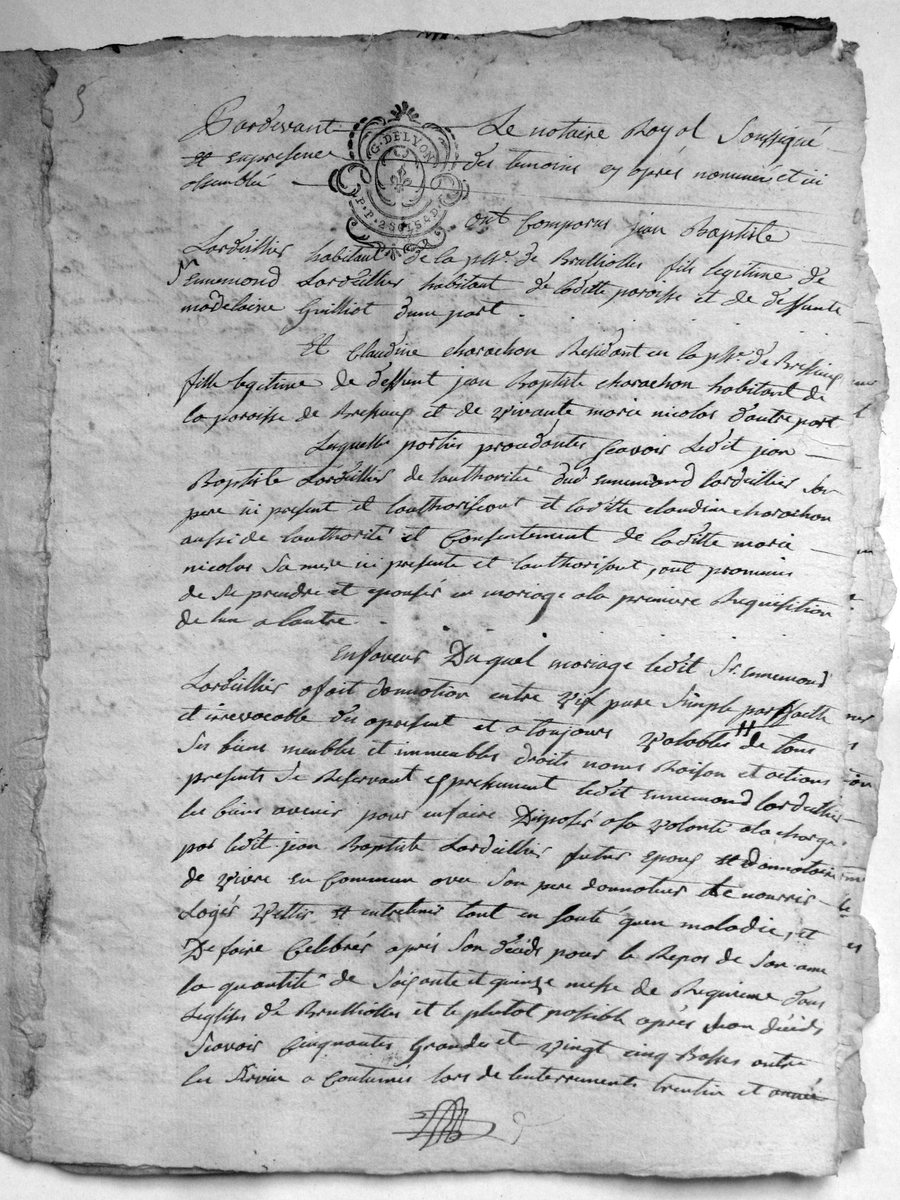 5
Pardevant Le notaire Royal Soussigné
et enpresence des temoins cy après nommés et ici
assemblés
G. DE LYON
ont Comparus jean Baptiste
Lardellier habitant de la psse. de Brulliolles fils legitime de
Sr. Ennemond Lardellier habitant de laditte paroisse et de deffunte
madelaine Guilliot d'une part .
Et Claudine charachon Residant en la psse. de
fille legitime de deffunt jean Baptiste charachon habitant de
la paroisse de et de vivante marie nicolas d'autre part
Lesquelles parties procedantes scavoir ledit jean
Baptiste Lardellier de lauthorité dud. Ennemond Lardellier son
pere ici present et lauthorisant et laditte claudine charachon
aussi de lauthorité et Consentement de laditte marie
nicolas sa mere ici presente et lauthorisant, ont promis
de se prendre et epousés en mariage ala premiere Requisition
de lun a lautre .
Enfaveur Duquel mariage ledit Sr. Ennemond
Lardellier afait donnation entre vif pure simple parfaitte
et irrevocable des apresent et a toujours valables de tous
ses biens meubles et immeubles droits noms Raison et actions
presents se Reservant expressement ledit Ennemond Lardellier
les biens avenir pour enfaire Disposés asa volonté ala charge
par ledit jean Baptiste Lardellier futur epoux et donnataire
de vivre en Commun avec son pere donnateur de nourrir
Logés vettir et entretenir tant en santé quen maladie, et
De faire Celebrés aprés son déids pour le Repos de son ame
la quantité de soixante et quinze messe de Requieme dans
leglise de Brulliolles et le plutot possible aprés son déids
scavoir Cinquantes Grandes et vingt cinq Basses outre
les service acoutumés lors de lenterrements trentin et